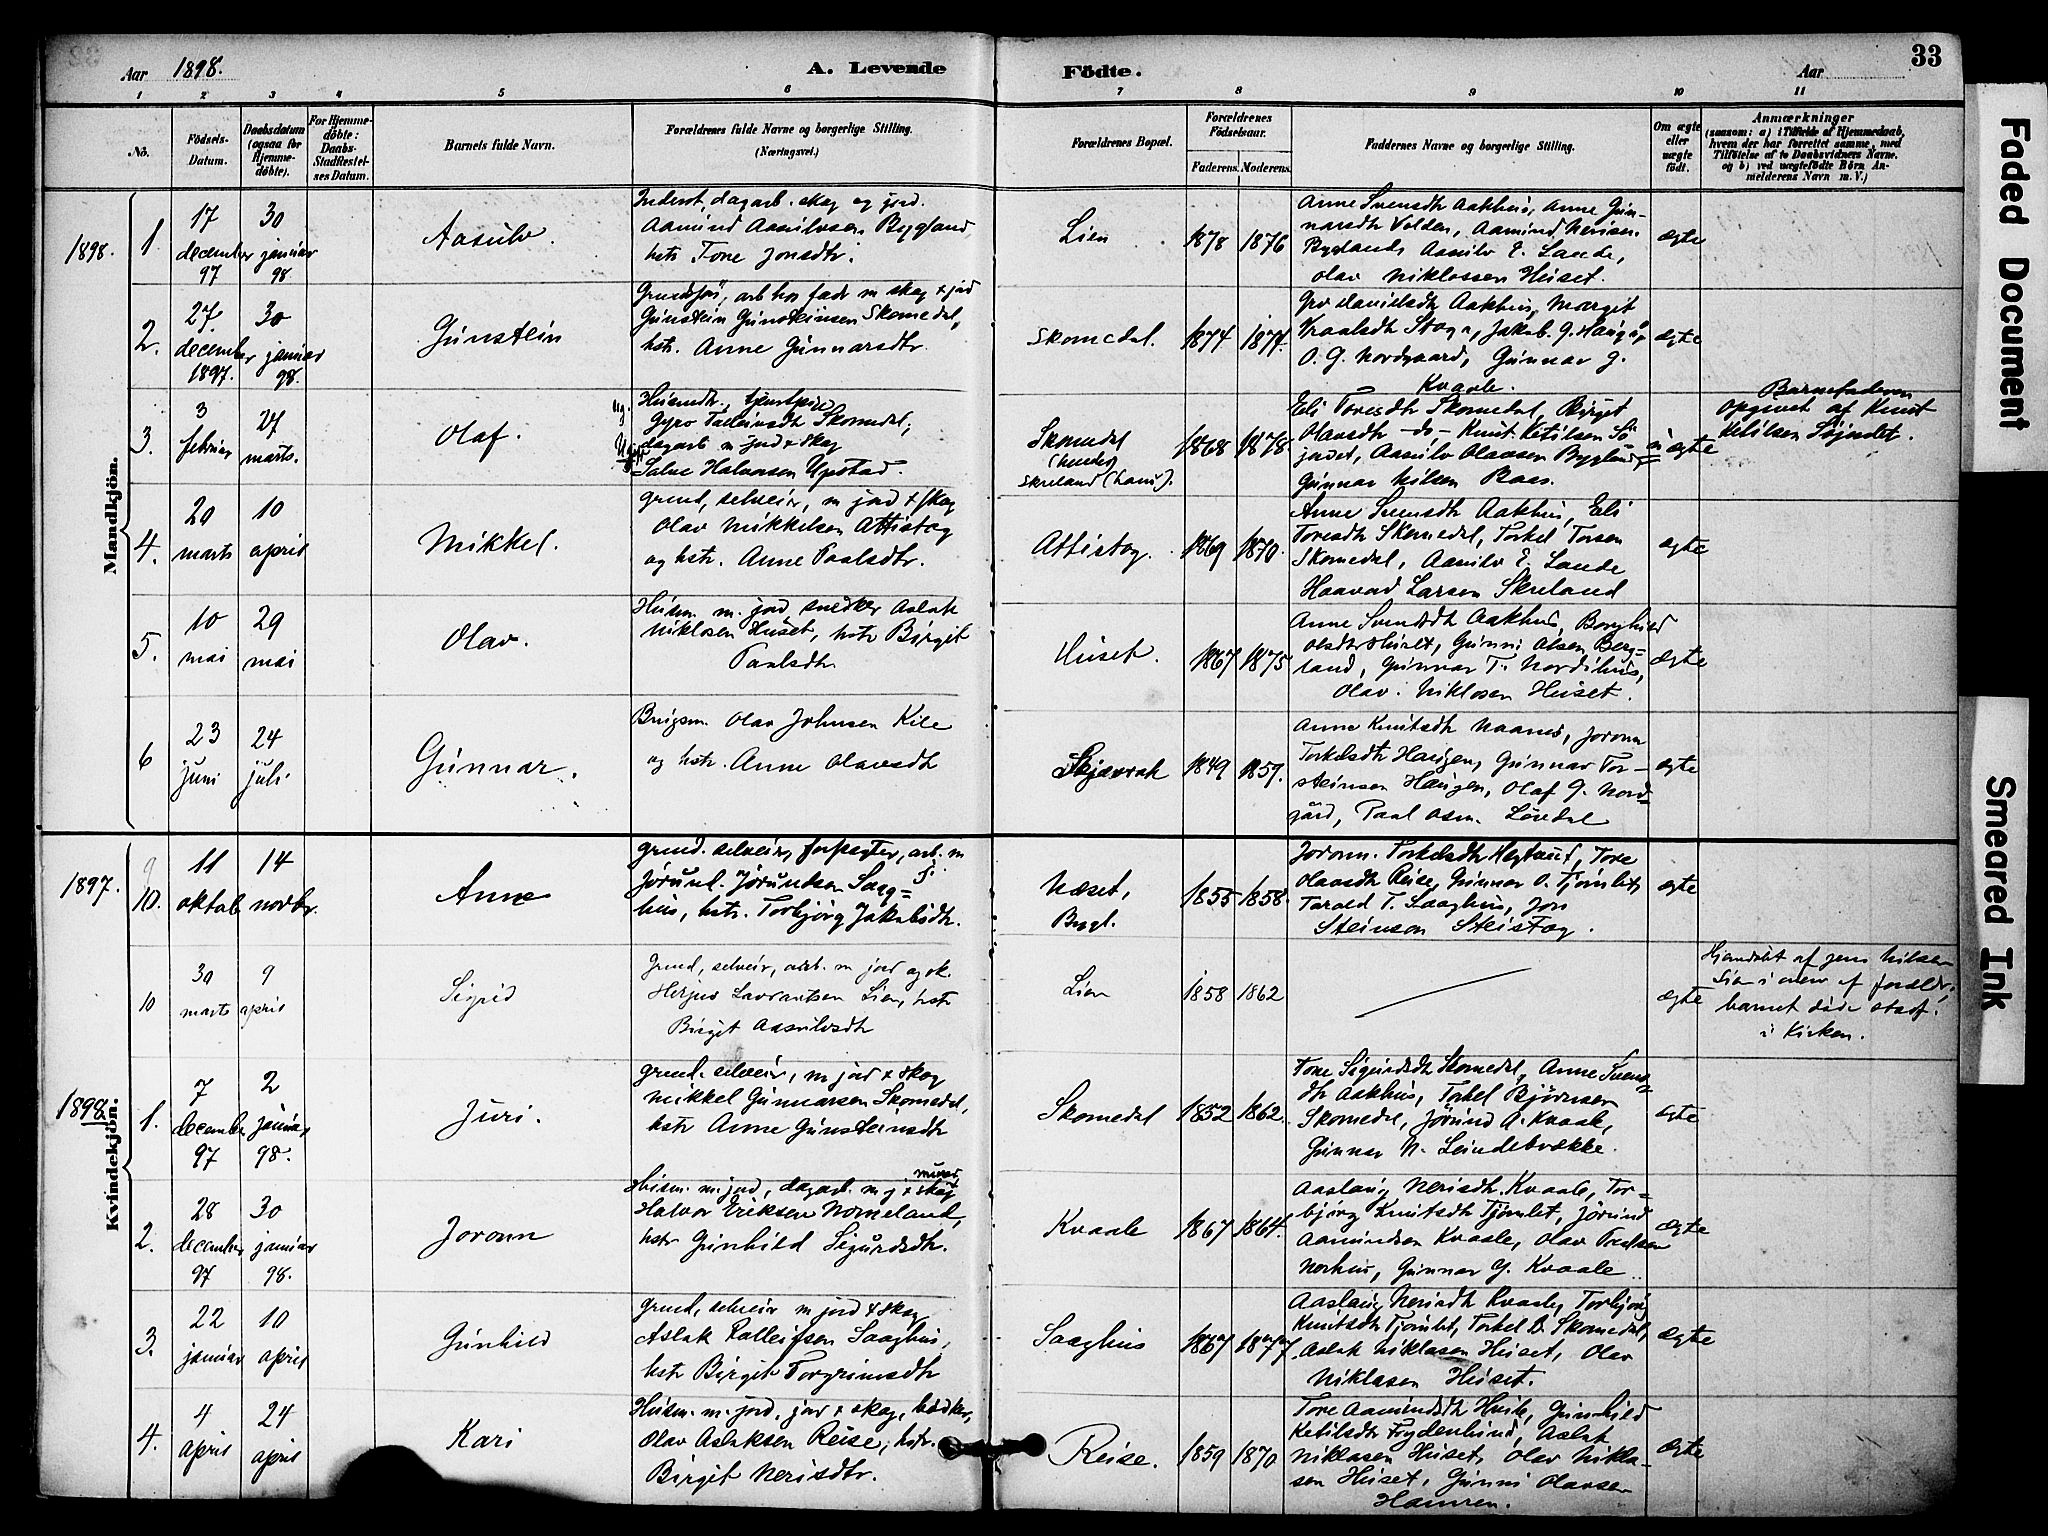 33
Aar 1898.
A. Levende Födte.
Aar
1 2 3 4 5 6 7 8 9 10 11
No.
Födsels-Datum.
Daabsdatum (ogsaa for Hjemme-döbte).
For Hjemme-döbte: Daabs-Stadfæstel-ses Datum.
Barnets fulde Navn.
Forældrenes fulde Navne og borgerlige Stilling.
(Næringsvei.)
Forældrenes Bopæl.
Forældrenes Födselsaar.
Faderens. Moderens.
Faddernes Navne og borgerlige Stilling.
Om ægte eller uægte født.
Anmærkninger
(saasom: a) i Tilfælde af Hjemmedaab,
hvem der har forrettet samme, med
Tilföielse af to Daabsvidners Navne.
og b) ved uægtefödte Börn An-
melderens Navn m. V.)
Mandkjön.
1898.
1
17 december 97
30 januar 98
Aasulv.
Inderst, dagarb. skog og jord.
Aamund Aasulvsen Bygland
hstr Tone Jonsdtr.
Lien
1878 1876
Anne Svensdtr Aakhus, Anne Gun-
narsdtr Velden, Aamund Nerisen
Bygland, Aasulv E. Lande,
Olav Niklossen Huset.
ægte
2.
27. december 1897.
30 januar 98.
Gunstein
Gunstein Gunsteinsen Skomedal,
hstr. Anne Gunnarsdtr.
Skomedal.
1874 1877.
Gro Davidsdtr Aakhus, Marget
O. G. Nordgaard, Gunnar G.
Kvaale.
ægte
3.
3 februar
27 marts.
Olaf.
Ug.
Gyro Talleivsdtr Skomedal;
dagarb m jord + skog
Salve Halvorsen Upstad.
Skomedal
(hendes)
Skreland (hans).
1868 1878.
Eli Toresdtr Skomedal, Birget
Olavsdtr -do- Knut Ketilsen Sö-
jordet, Aasulv Olavsen Bygland,
Gunnar Nilsen Baas.
uægte
Barnefaderen
opgivet af Knut
Ketilsen Söjordet.
4.
20 marts
10 april
Mikkel.
grund, selveier, m jord + skog
Olav Mikkelsen Attistog
og hstr. Anne Paalsdtr.
Attistog.
1869 1870.
Anne Svensdtr Aakhus, Eli
Toresdtr Skomedal, Torkel Torsen
Skomedal, Aasulv E. Lande
Haavard Larsen Skreland
ægte
5.
10 mai
29 mai
Olav.
Husm. m. jord snedker Aslak
Niklosen Huset, hstr Birgit
Paalsdtr
Huset.
1867 1875
Anne Svensdtr Aakhus, Borghild
Olsdtr Huset, Gunni Olsen Berg-
land, Gunnar T. Nordihus,
Olav. Niklosen Huset.
ægte
6
23 juni
24 juli
Gunnar.
Brugsm. Olav Johnsen Kile
og hstr. Anne Olavsdtr
Skjævrak
1849 1859.
Anne Knutsdtr Naanes, Joronn
Torkelsdtr Haugen, Gunnar Tor-
steinsen Haugen, Olaf G. Nord-
gård, Paal Asm. Løvdal
ægte
Kvindekjön.
1897.
9
10.
11 oktob
14 novbr.
Anne
grund. selveier, forpagter, arb. m j.
Jørund. Jørundsen Saag-
hus, hstr. Torbjörg Jakobsdtr.
Næset,
Bygl.
1855 1858.
Joronn. Torkelsdtr Hegtveit, Tore
Olavsdtr Reise, Gunnar O. Tjomlet,
Tarald T. Saaghus, Jon
Steinson Steistog.
ægte
10
30 marts
9 april
Sigrid
Grund, selveier, arb. m jord og sk.
Herjus Lavrantsen Lien, hstr
Birgit Aasulvsdtr
Lien
1858 1862
ægte
Hjemdøbt af Jens Nilsen
Lien i overv. af forældr.
barnet døde stadf.
i Kirken.
1898.
1.
7 december 97
2 januar 98.
Juri.
grund. selveier, m jord + skog
Mikkel Gunnarsen Skomedal,
hstr Anne Gunsteinsdtr
Skomedal
1852 1862.
Tone Sigurdsdtr Skomedal, Anne Svens-
dtr Aakhus, Torkel Bjørnsen
Skomedal, Jørund A. Kvaale,
Gunnar N. Leindebrække.
ægte
2.
28 december 97
30 januar 98.
Joronn
Husm. m. jord, dagarb. m j + skog murer,
Halvor Eriksen Nomeland,
hstr Gunhild Sigurdsdtr.
Kvaale
1867 1864.
Aaslaug Nerisdtr. Kvaale, Tor-
björg Knutsdtr Tjomlet, Jörund
Aamundsen Kvaale, Olav
Norhus, Gunnar G. Kvaale
ægte
3.
22 januar
10 april
Gunhild
Grund, selveier m jord + skog
Aslak Talleifsen Saaghus,
hstr Birgit Torgrimsdtr
Saaghus
1867 1877
Aaslaug Nerisdtr Kvaale, Torbjörg
Knutsdtr Tjomlet, Torkel B. Skomedal,
Aslak Niklasen Huset, Olav
Niklasen Huset.
ægte
4.
4 april
24 april
Kari
Husm. m. jord, jord + skog, bødker,
Olav Aslaksen Reise, hstr.
Birgit Nerisdtr.
Reise.
1859 1870
Tore Aamundsdtr Hvile, Gunhild
Ketilsdtr Frydenlund, Aslak
Niklasen Huset, Olav Nikla-
sen Huset, Gunni Olavsen
Hamren.
ægte
Faded Document
Smeared Ink